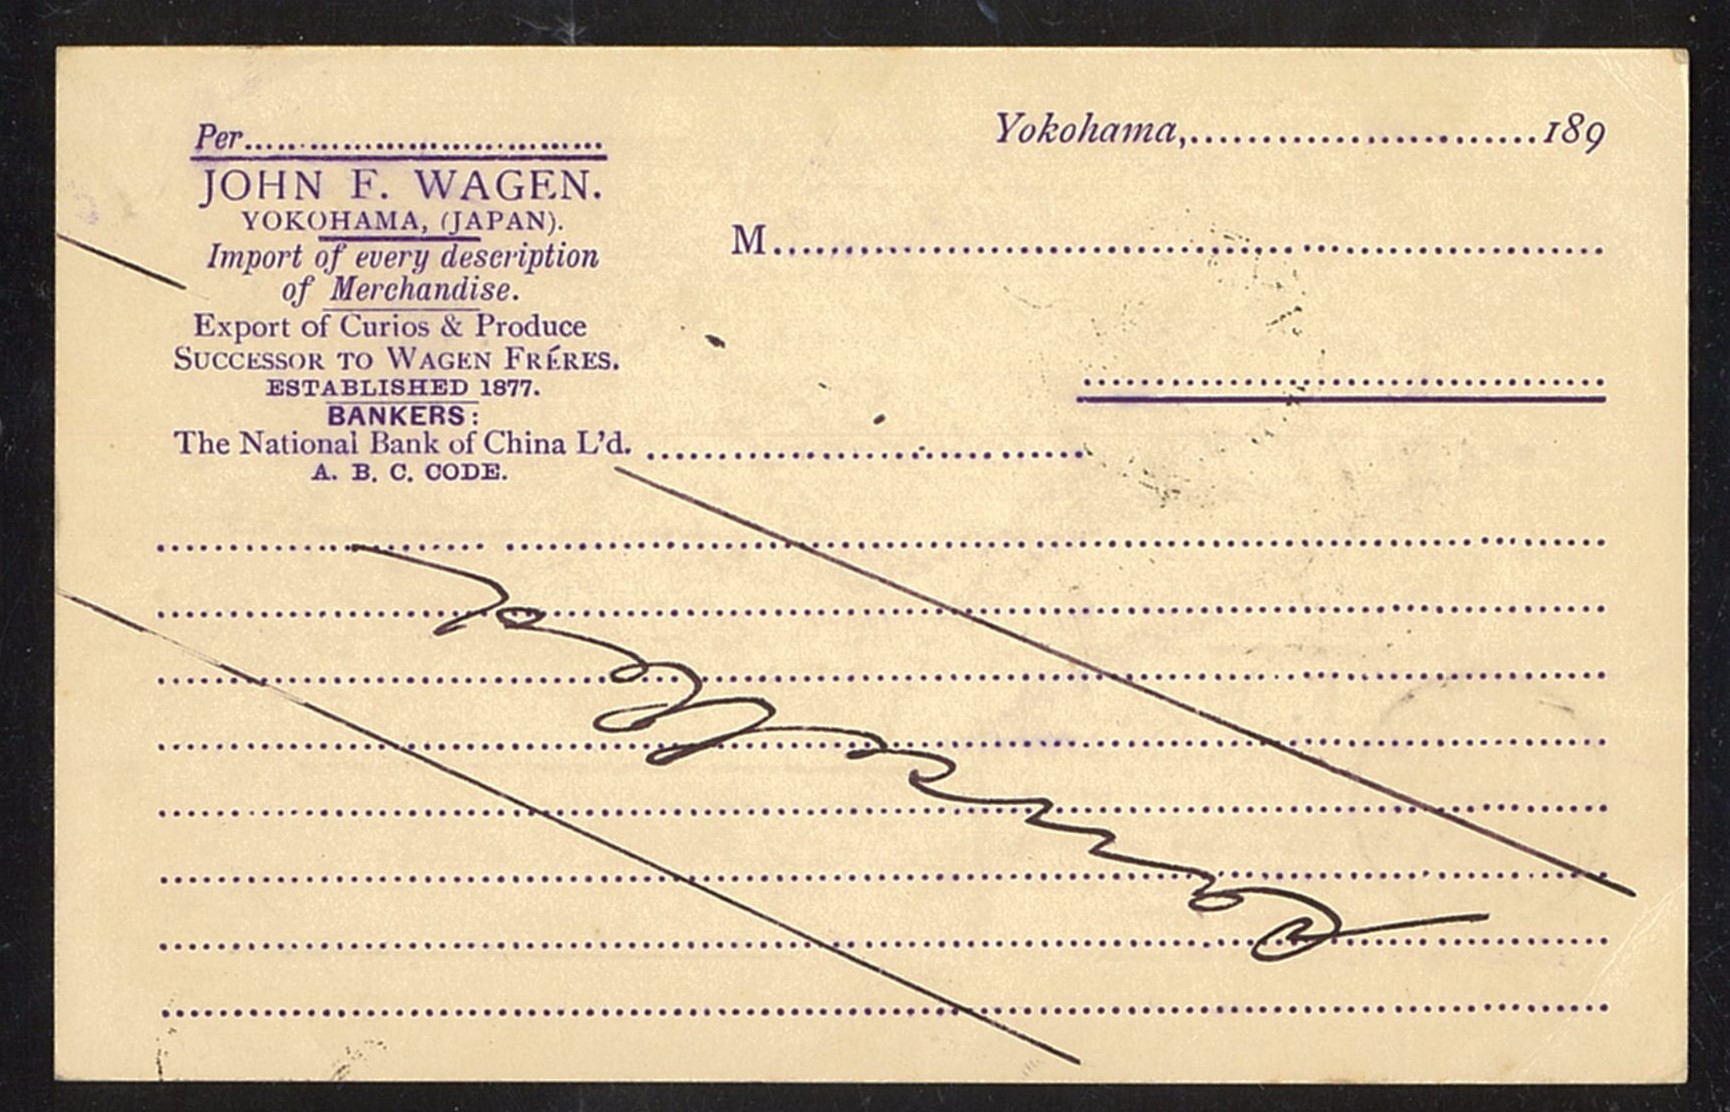 Per
JOHN F. WAGEN.
YOKOHAMA, (JAPAN).
Import of every description
of Merchandise.
Export of Curios & Produce
SUCCESSOR TO WAGEN FRÉRES.
ESTABLISHED 1877.
BANKERS:
The National Bank of China L'd.
A. B. C. CODE.
Yokohama, 189
M